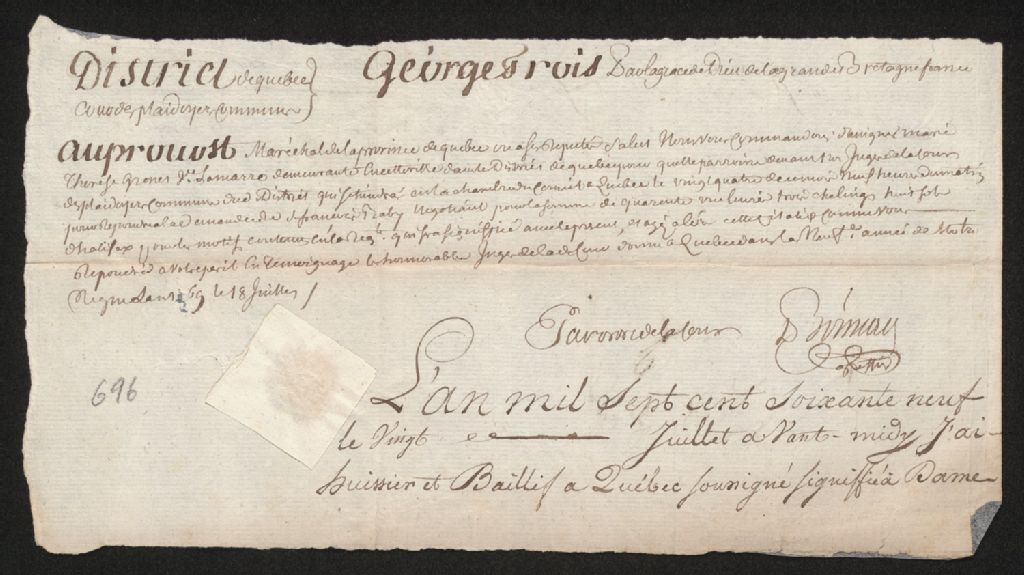 District de quebec } George Trois Par la grace de Dieu de la grande Bretagne france
Cour de plaidoyer commun
Au prouost Maréchal de la province de quebec ou a ses Deputés Salut Nous vous Commandons d'assigné marie
Therése Gronet Ve. Lamarre demeurante En cette ville dans le District de quebec pour quelle paroisse devant les Juges de la Cour
de plaidoyer Commun dud District qui se tiendra en la chambre du Comité a Quebec le vingt quatre du Neuf heure du matin
pour Repondre a la demande de francois Baby Négotiant pour la somme de quarente une livre trois chelings huit sol
d'halifax pour les motifs contenus En la Reqte. qui sera signifiée avec le present, et agé Cette Commission
Reponderé a Votre peril En Temoignage les honnorables Juges de la de. Cour donné a Quebec dans la Neufe. année de Notre
Regne L'an 1769 le 18 Juillet /
Par ordre de la Cour
696
L'an mil Sept cent Soixante neuf
le Vingt Juillet avant-midy J'ai
huissier et Baillif a Québec sousigné signiffié a Dame